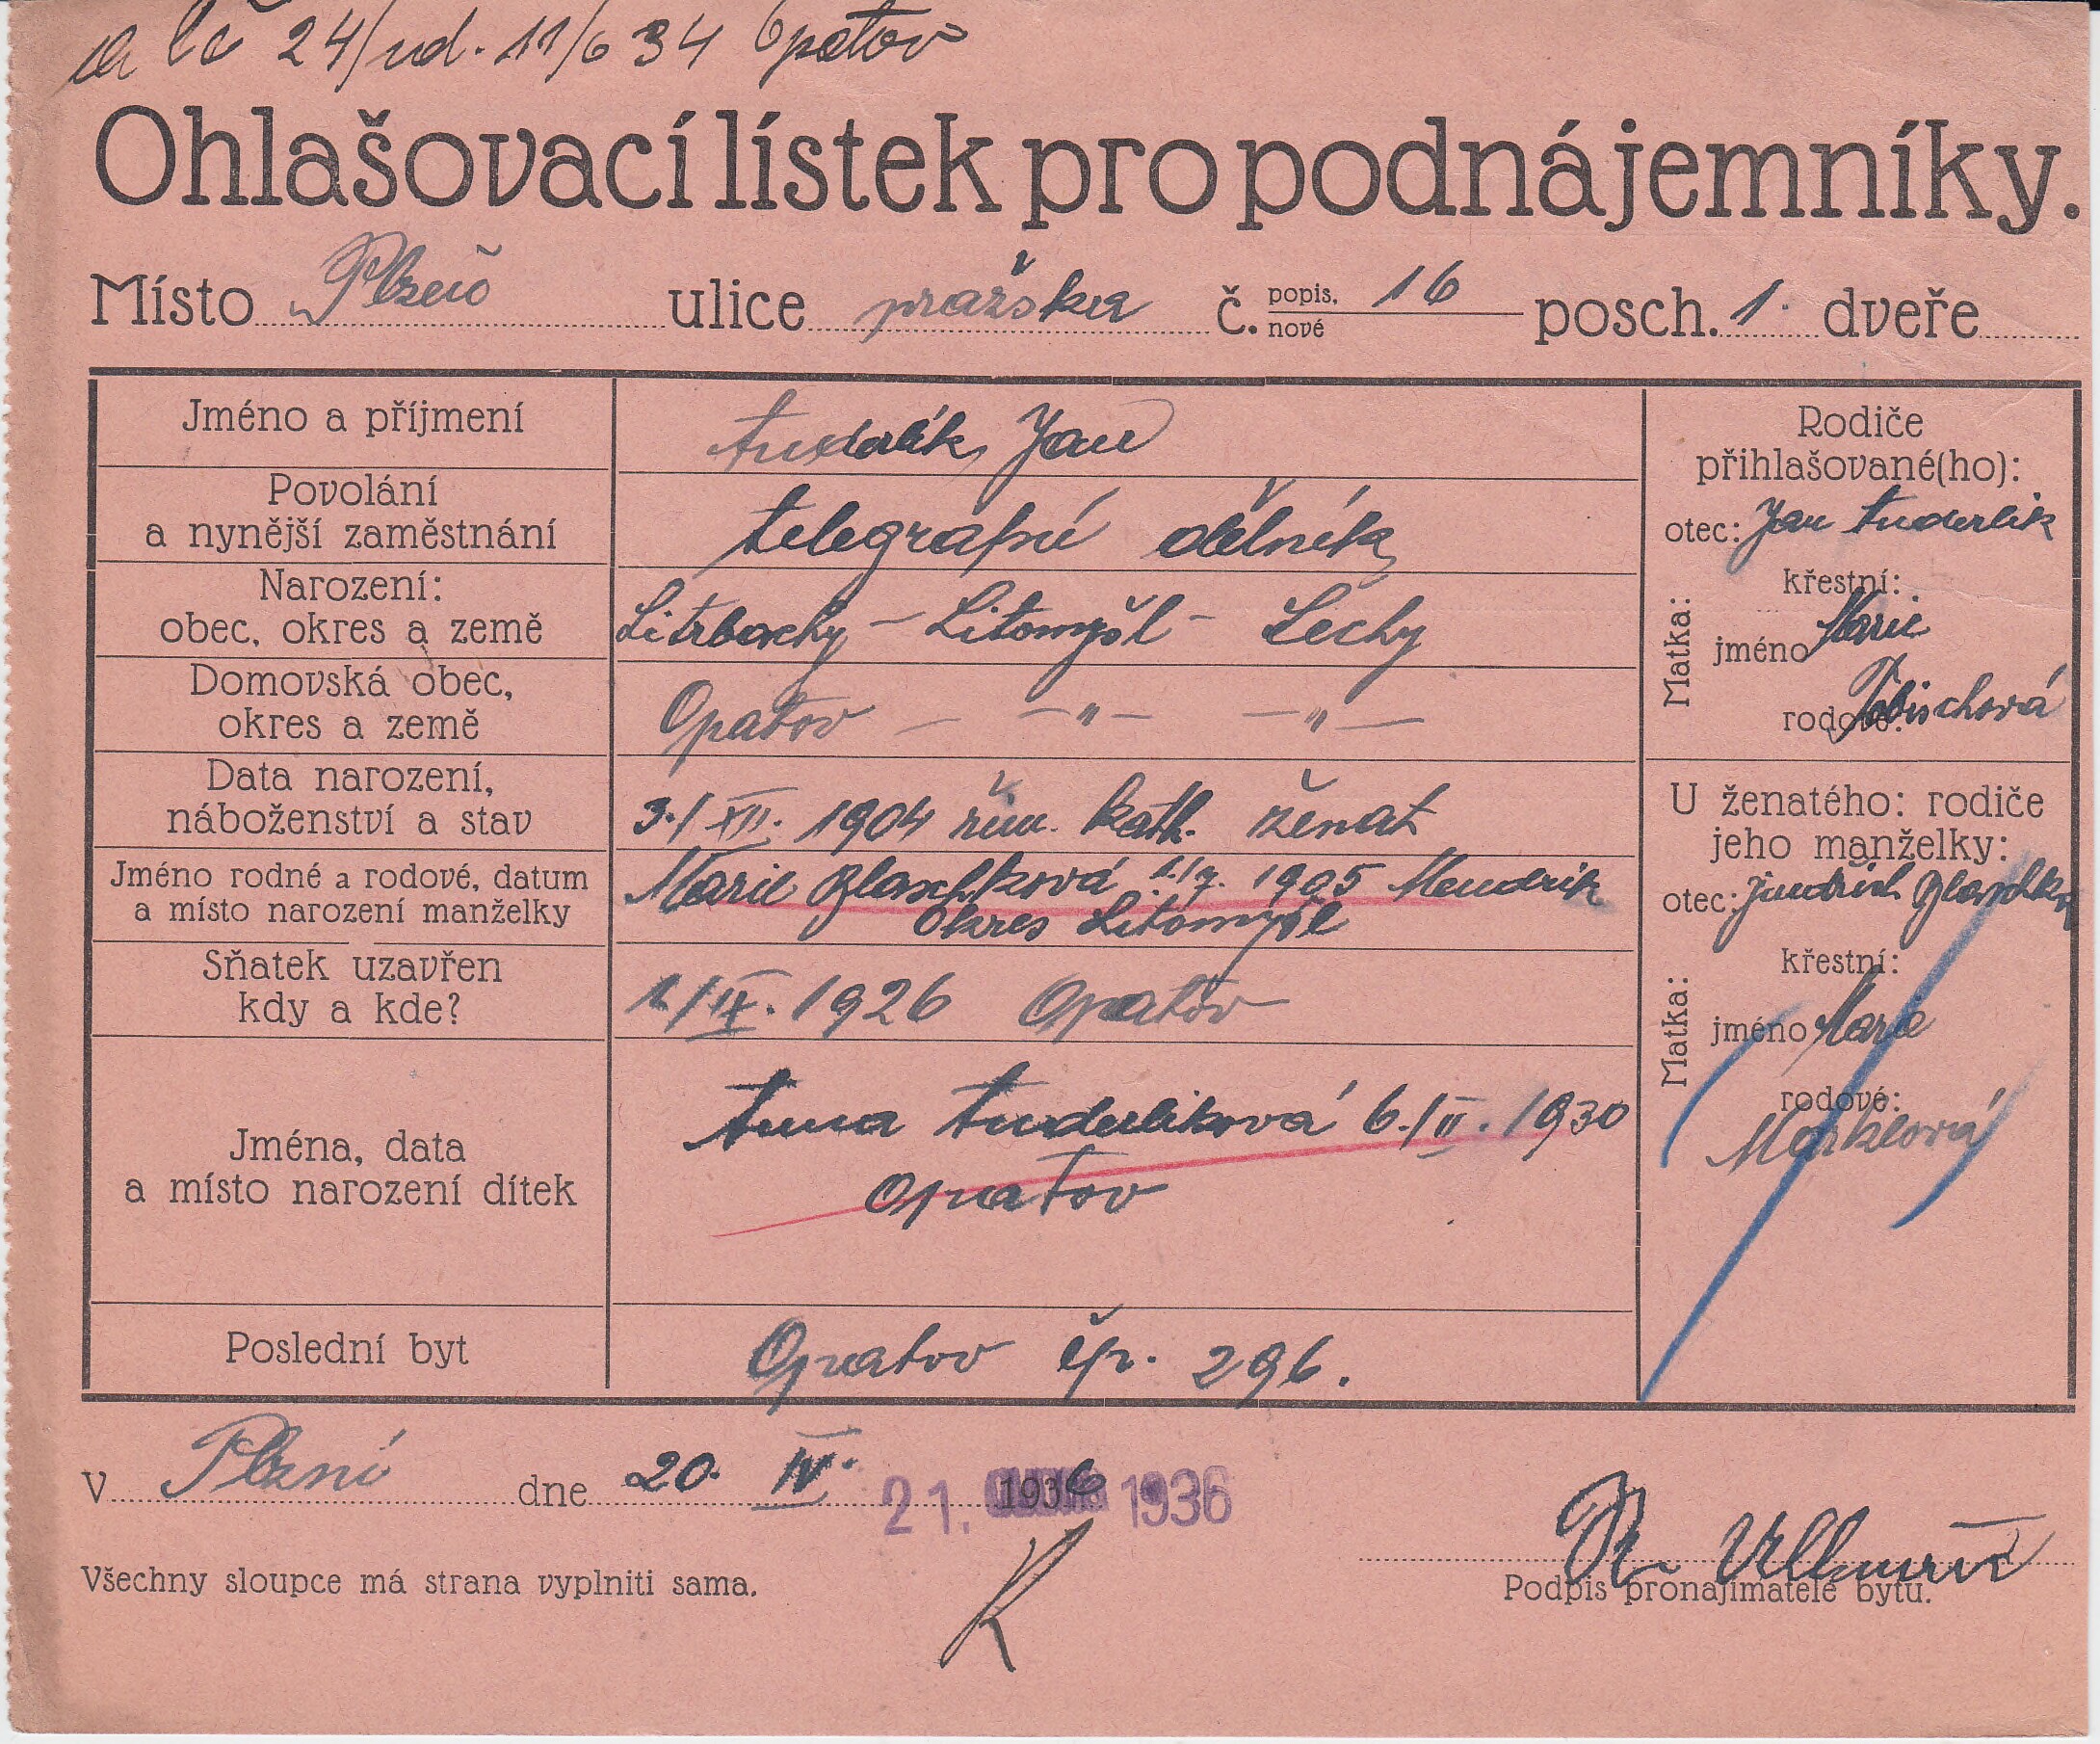 24/vd. 11/6 34 Opatov
Ohlašovací lístek pro podnájemníky.
Místo Plzeň ulice pražska č. popis. 16 posch. 1. dveře
nové
Jméno a příjmení
Jan
Povolání
a nynější zaměstnání
telegrafní dělník
Narození:
obec, okres a země
Litrbachy - Litomyšl - Čechy
Domovská obec,
okres a země
Opatov — —"— —"—
Data narození,
náboženství a stav
3./XII. 1904 řím. kath. ženat
Jméno rodné a rodové, datum
a místo narození manželky
Marie Blaschková 1./7. 1905 Mendrik
Okres Litomyšl
Sňatek uzavřen
kdy a kde?
1./IX. 1926 Opatov
Jména, data
a místo narození dítek
Anna Anderliková 6./II. 1930
Opatov
Poslední byt
Opatov čp. 296.
Rodiče
přihlašované(ho):
otec: Jan Anderlik
Matka:
křestní:
jméno Marie
rodové: Tobischová
U ženatého: rodiče
jeho manželky:
otec: Jindřich Blaschka
Matka:
křestní:
jméno Marie
rodové:
Marklová
V Plzni dne 20. IV. 1936
21. 1936
K
Všechny sloupce má strana vyplniti sama.
Podpis pronajímatele bytu.